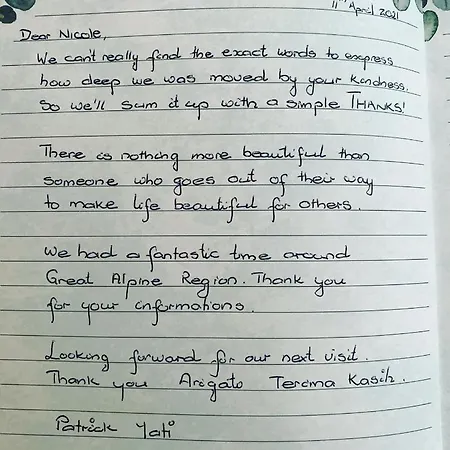 11th April 2021
Dear Nicole,
We can't really find the exact words to express
how deep we was moved by your kindness.
So we'll sum it up with a simple THANKS!
There is nothing more beautiful than
someone who goes out of their way
to make life beautiful for others.
We had a fantastic time around
Great Alpine Region. Thank you
for your informations.
Looking forward for our next visit.
Thank you Arigato Terima Kasih.
Patrick Yati